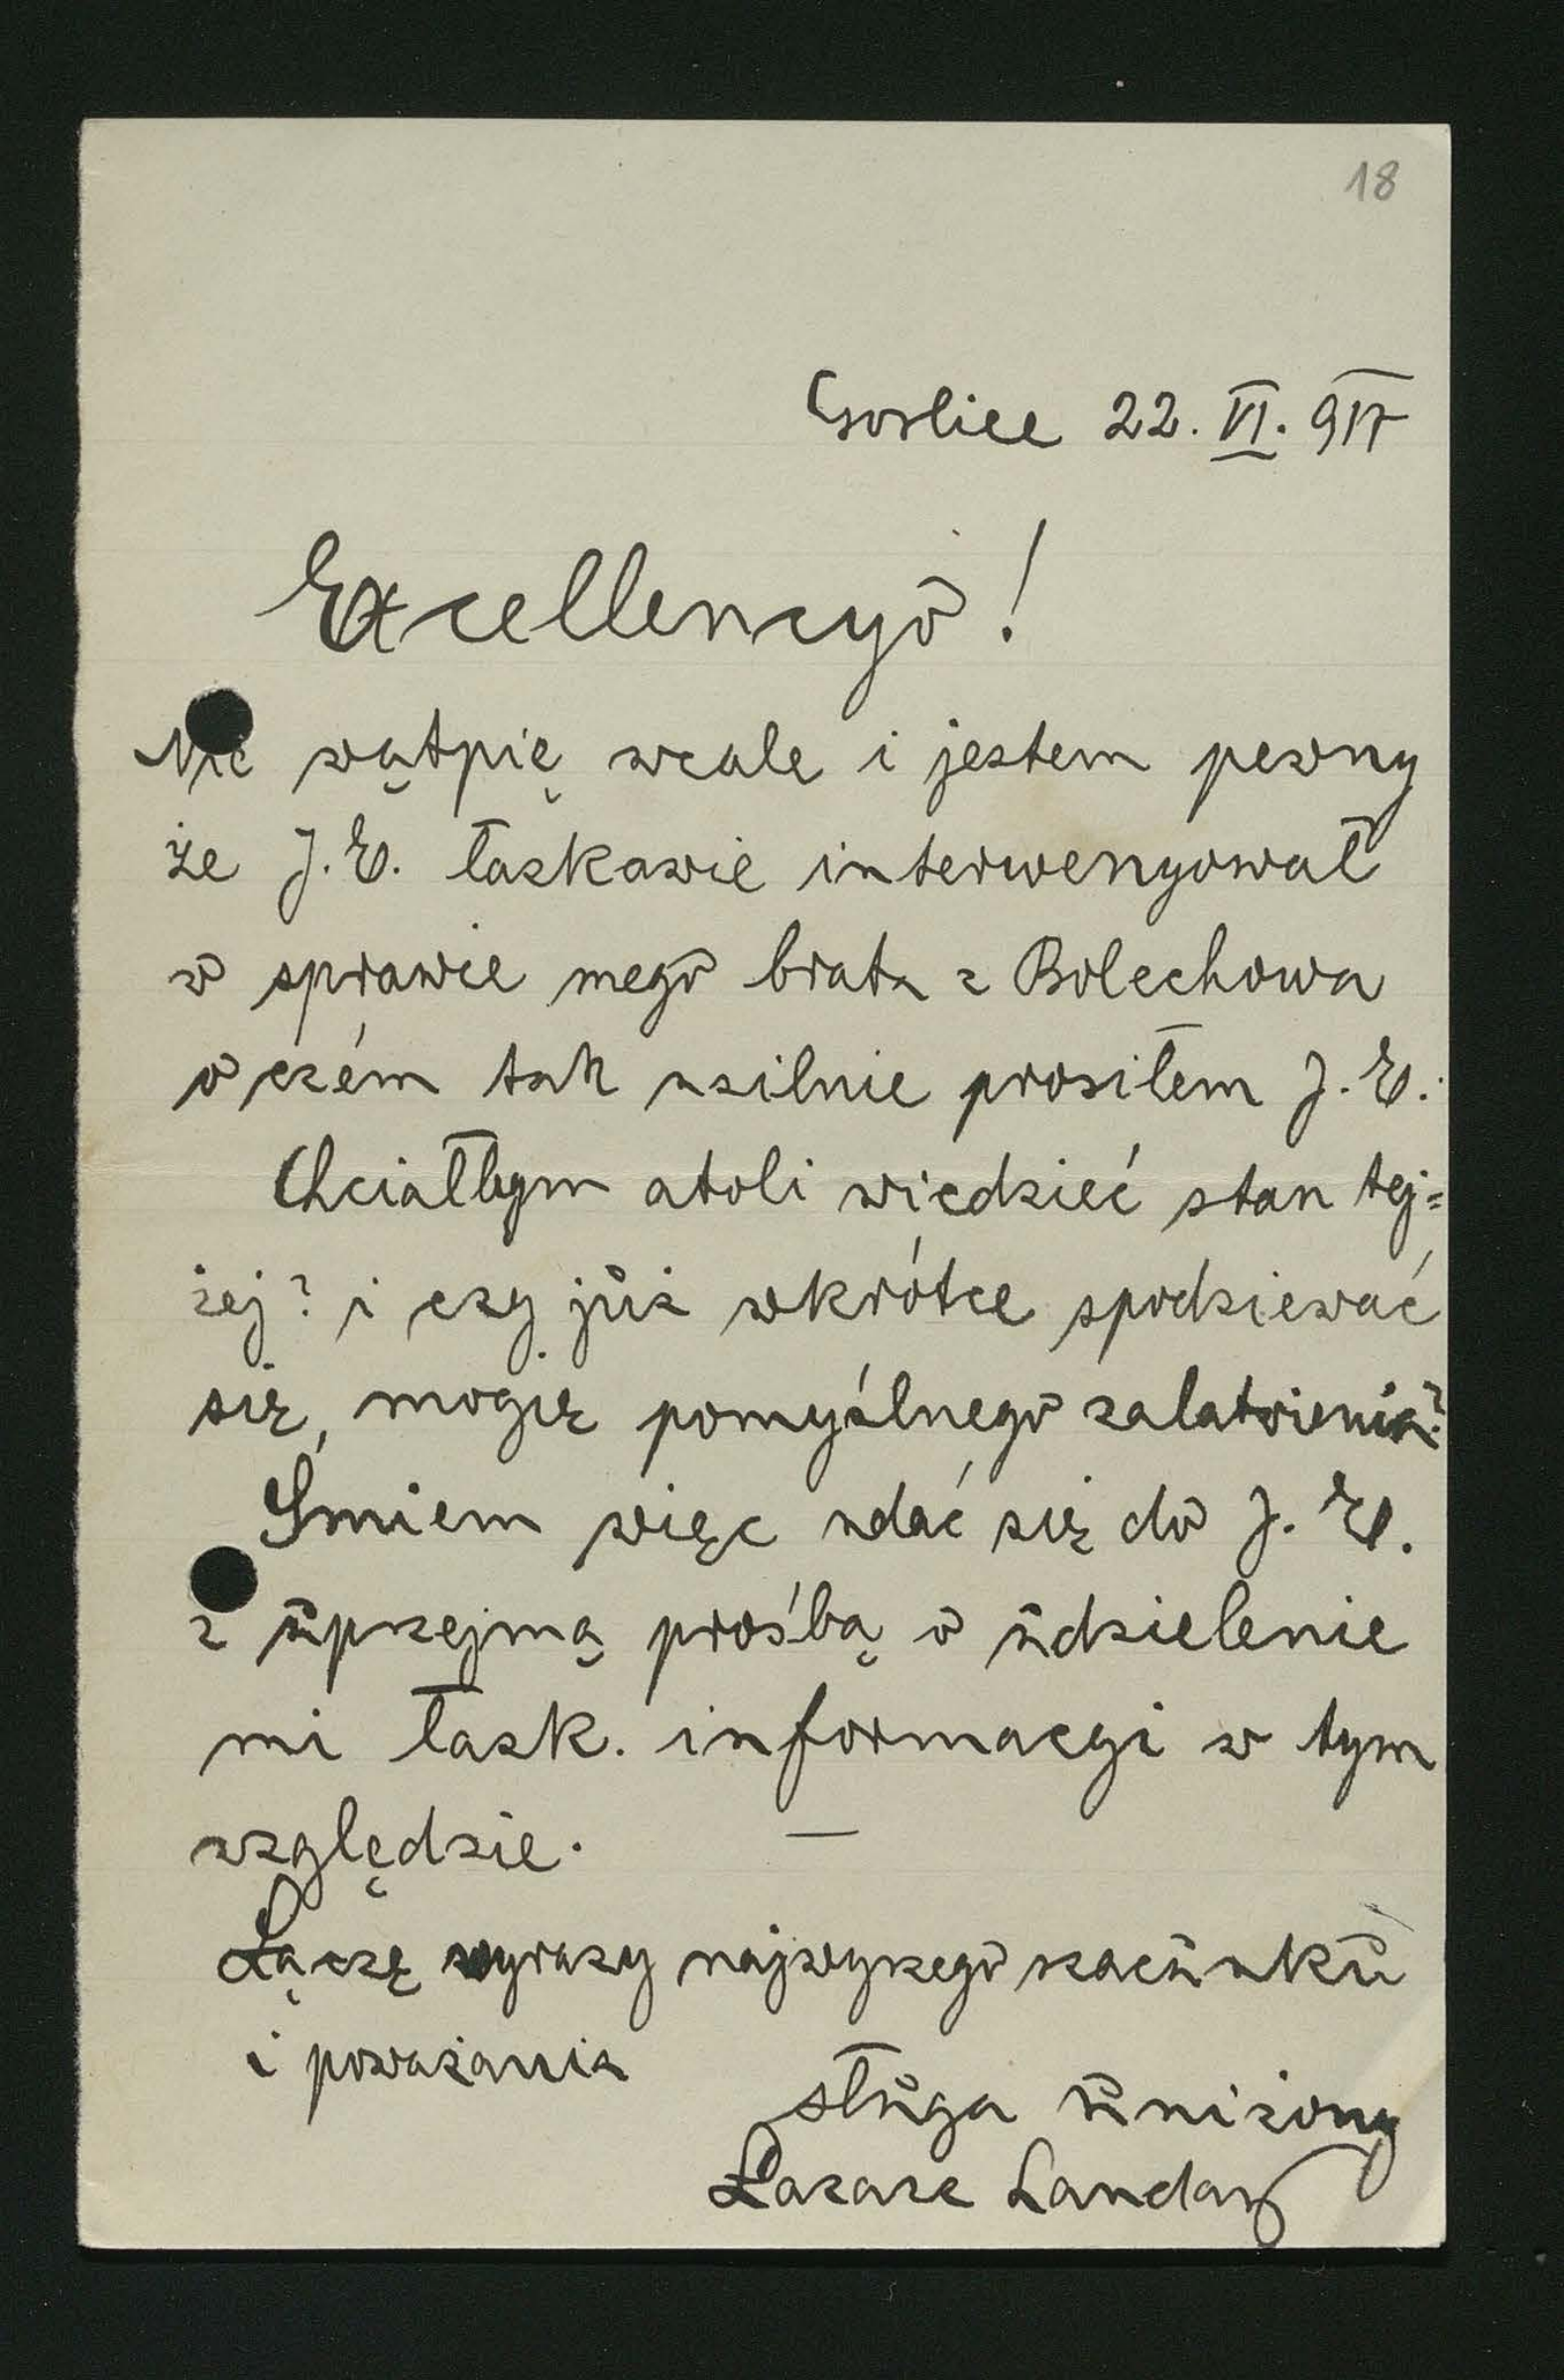 18
Gorlice 22. VI. 917
Excellencyo!
Nie wątpię wcale i jestem pewny
że J.E. łaskawie interwenyował
w sprawie mego brata z Bolechowa
o czém tak usilnie prosiłem J.E.
Chciałbym atoli wiedzieć stan tej=
żej? i czy już wkrótce spodziewać
się, mogię pomyślnego zalatwienia?
Śmiem więc udać się do J.E.
z uprzejmą prośbą o udzielenie
mi łask. informacyi w tym
względzie. —
Łączę wyrazy najwyższego szacunku
i poważania
sługa uniżony
Lazarz Landau